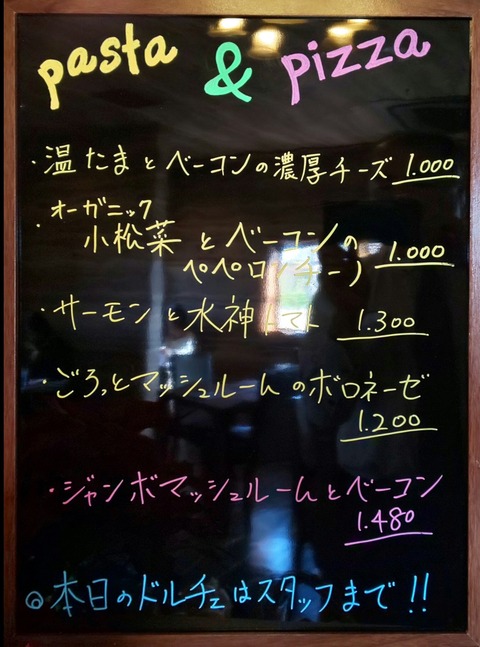 pasta & pizza
・温たまとベーコンの濃厚チーズ 1.000
オーガニック
・小松菜とベーコンの
ペペロンチーノ 1.000
・サーモンと水神トマト 1.300
・ごろっとマッシュルームのボロネーゼ
1.200
・ジャンボマッシュルームとベーコン
1.480
◎本日のドルチェはスタッフまで!!